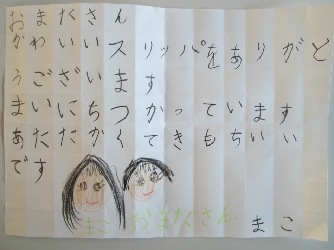 おまたさん
かわいいスリッパをありがと
うございます
まいにちつかっています
あたたかくてきもちいい
です
まこ おまたさん
まこ